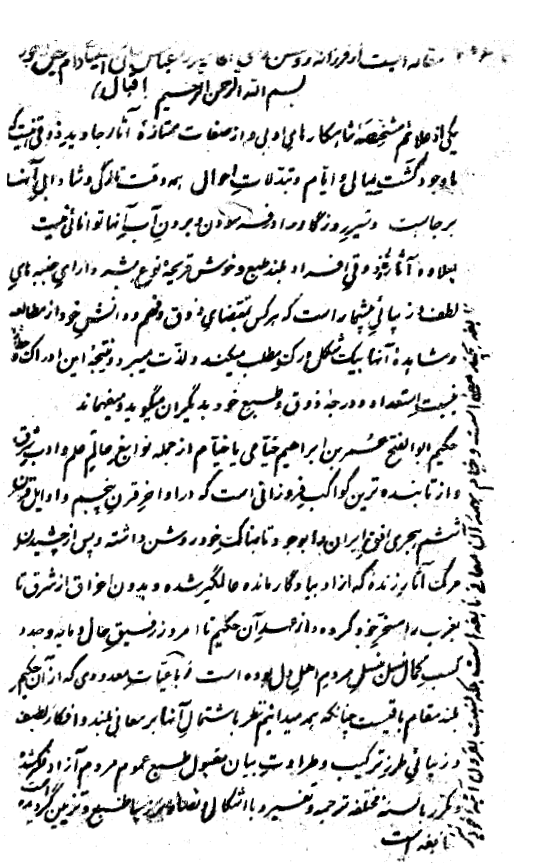 مقاله ایست از فرزانه
بسم الله الرحمن الرحیم (اقبال)
یکی از علائم مشخصهٔ شاهکارهای ادبی و از صفات ممتازهٔ آثار جاوید ذوقی اینست که
با وجود گشت لیالی و ایام و تبدلات احوال همه وقت تازگی و شادابی آنها
برجاست و سیر روزگار در افسرده کردن و بردن آب آنها توانائی نیست
بعلاوه آثار ذوقی افراد بلند طبع و خوش قریحهٔ نوع بشر دارای جنبه های
لطف و زیبائی بیشمار است که هر کس بمقتضای ذوق و فهم و دانش خود از مطالعه
و مشاهدهٔ آنها بیک شکل درک مطلب میکند و لذت میبرد و نتیجهٔ این ادراک
بنسبت استعداد و درجهٔ ذوق و طبع خود بدیگران میگوید و میفهماند
حکیم ابوالفتح عمر بن ابراهیم خیامی یا خیام از جمله نوابغ عالم علم و ادب شرق
و از تابنده ترین کواکب فروزانی است که در اواخر قرن پنجم و اوایل قرن
ششم هجری افق ایران را بوجود تابناک خود روشن داشته و پس از چشیدن
مرگ آثار زنده که از او بیادگار مانده عالمگیر شده و بدون اغراق از شرق تا
بغرب را مسخر خود کرده و از عهد آن حکیم تا امروز رفیق حال و مایه وجد و
کسب کمال نسل نسل مردم اهل دل بوده است رباعیات معدودی که از آن حکیم
بلند مقام باقیست چنانکه همه میدانیم نظر باشتمال آنها بر معانی بلند و افکار لطیف
و زیبائی طرز ترکیب و طراوت بیان مقبول طبع عموم مردم آزاد فکر شده
و مکرر بالسنه مختلفه ترجمه و تفسیر و با اشکال و تصاویر زیبا طبع و تزیین گردیده
است